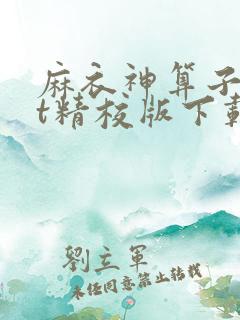 麻衣神算子
t精校版下载
劉立軍
未经同意禁止转载